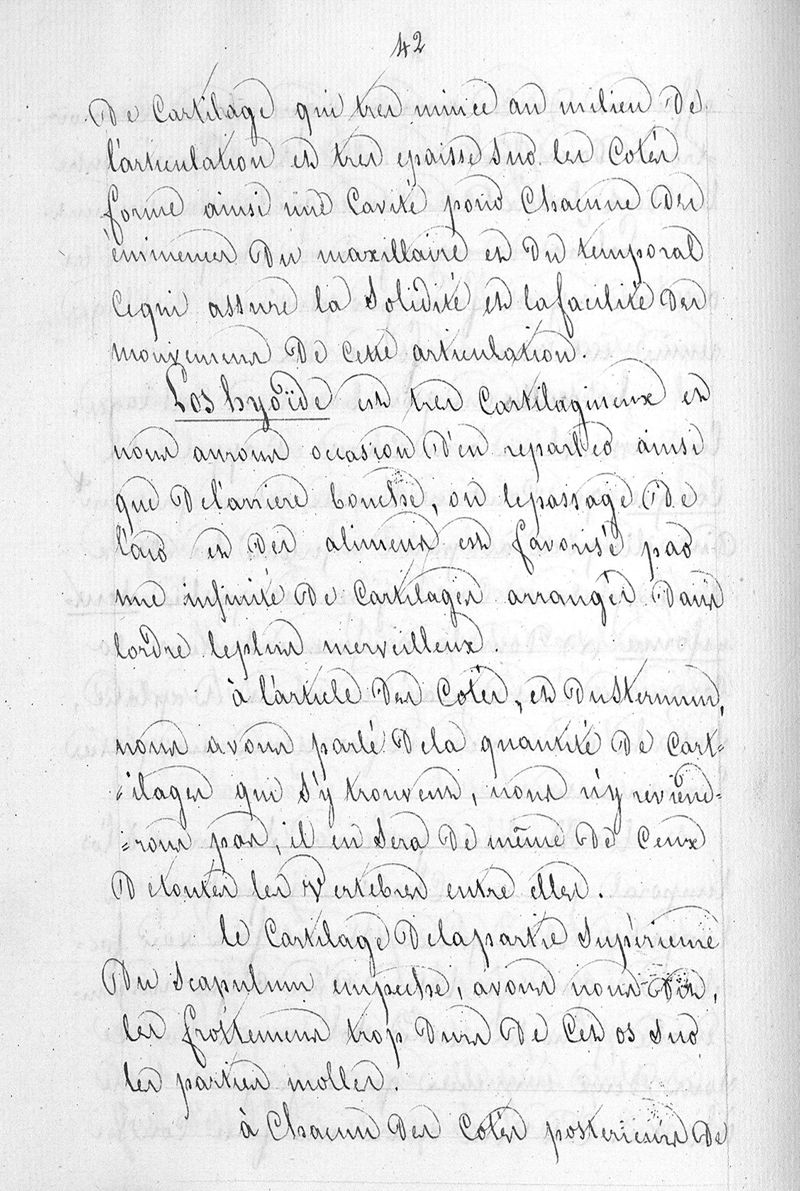 42
De Cartilage qui tres mince au milieu De
l'articulation et tres epaisse sur les Cotés
forme ainsi une Cavité pour Chacune des
éminences Du maxillaire et Du temporal
Cequi assure la Solidité et lafacilité Des
mouvemens De cette articulation.
L'os hyoïde est tres Cartilagineux et
nous aurons occasion D'en reparler ainsi
que Del'arriere bouche, ou lepassage De
l'air et Des alimens est favorisé par
une infinité De Cartilages arrangés Dans
l'ordre leplus merveilleux.
à l'article Des Cotés, et Dusternum,
nous avons parlé Dela quantité De Cart-
-ilages qui s'y trouvent, nous n'y reviend-
-rons pas, il en Sera De même De Ceux
De toutes les Vertebres entre elles.
le Cartilage Delapartie Supérieure
Du Scapulum empeche, avons nous Dit,
les frottemens trop Durs De Cet os Sur
les parties molles.
à Chacun Des Cotés posterieurs De